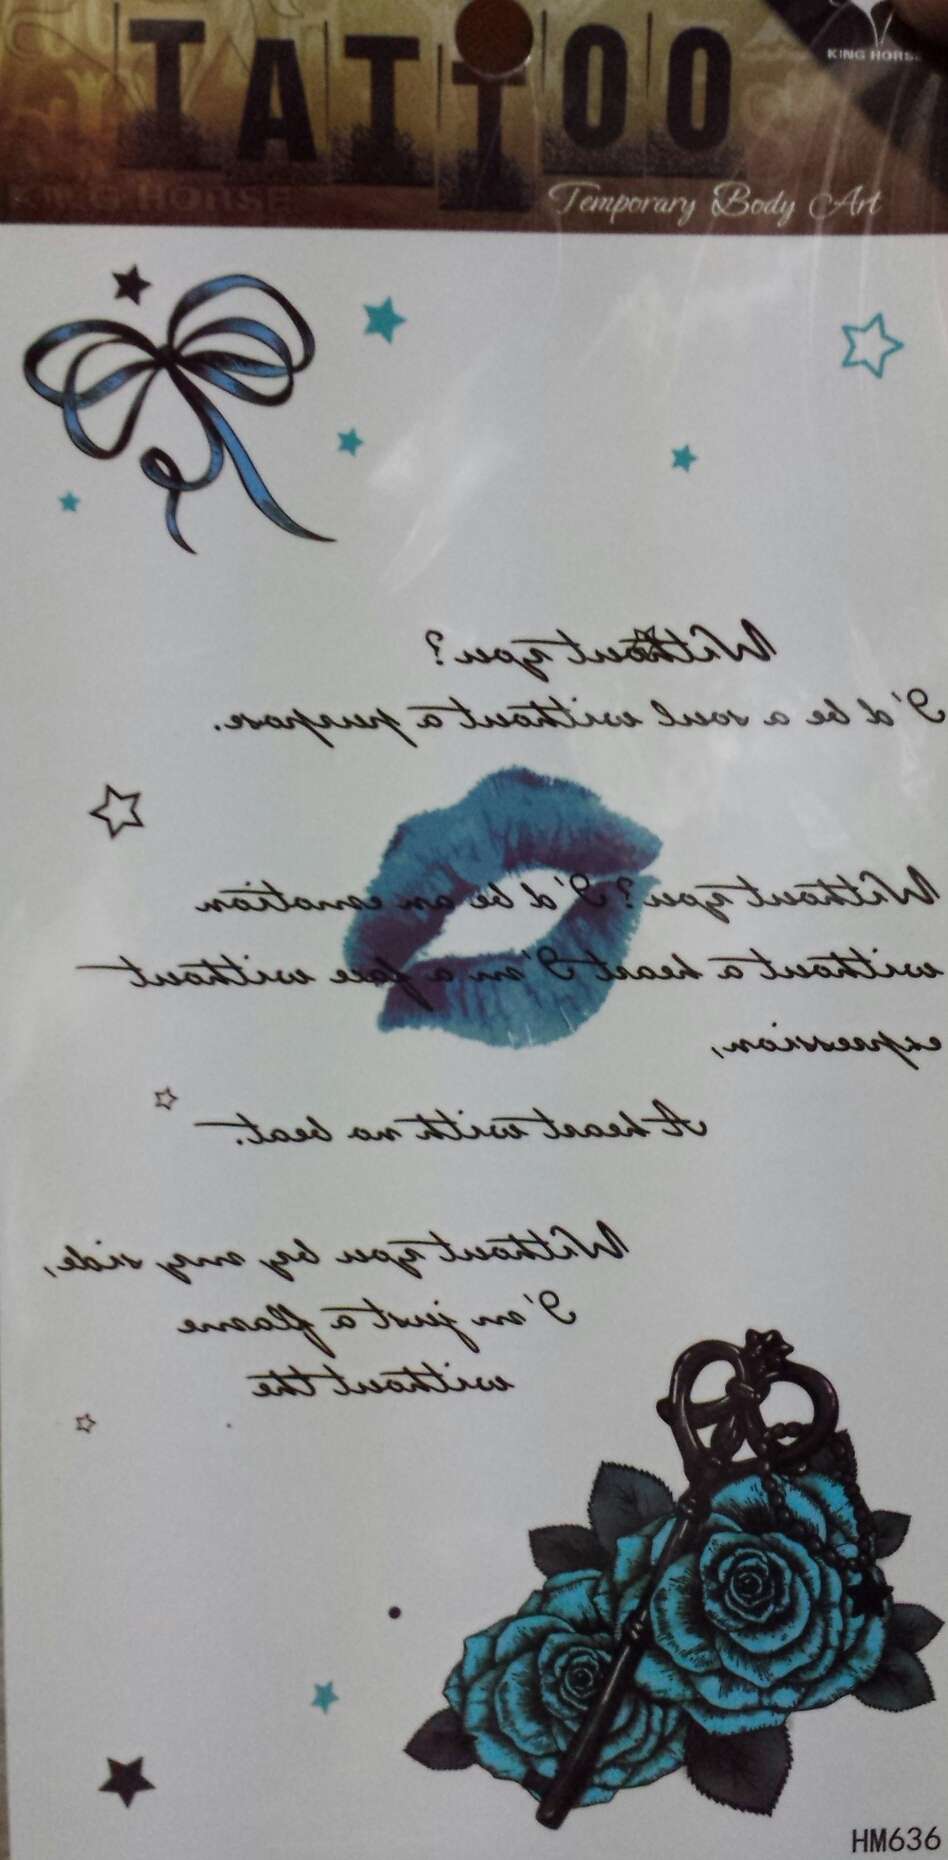 TATTOO
KING HORSE
KING HORSE
Temporary Body Art
Without you?
I'd be a soul without a purpose.
Without you? I'd be an emotion
without a heart I'm a face without
expression,
A heart with no beat.
Without you by my side,
I'm just a flame
without the
HM636